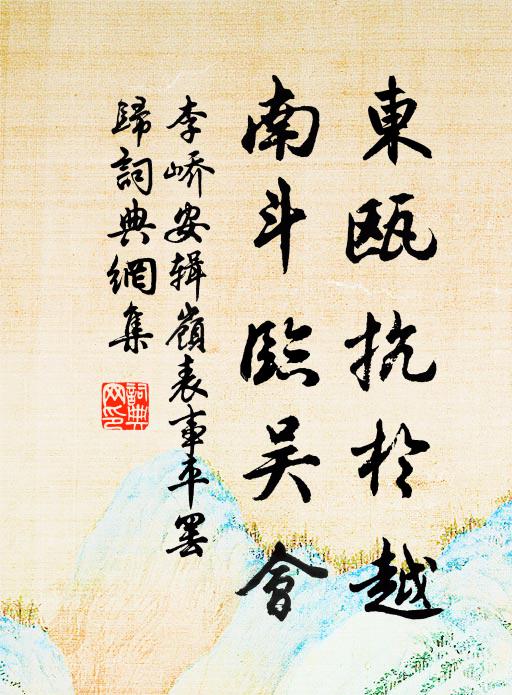 東甌抗於越
南斗臨吴會
李嶠安輯嶺表事平罢
歸詞典網集
詞典網印